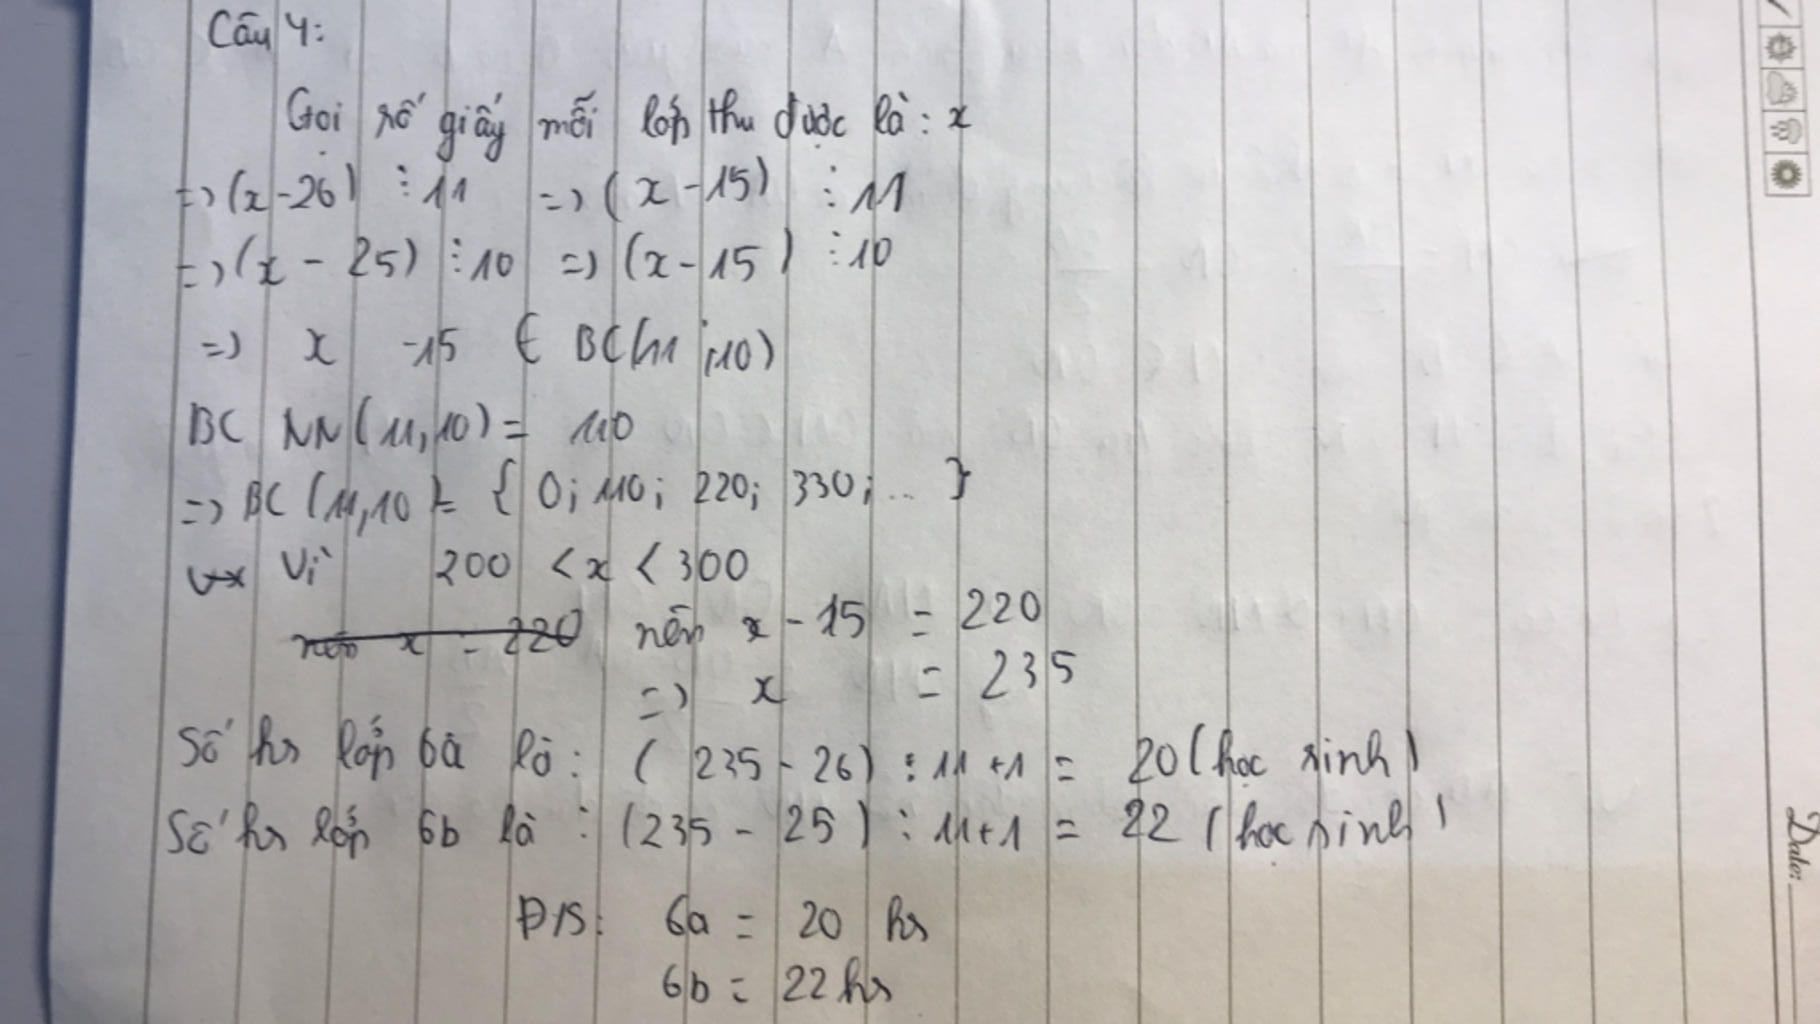 Câu 4:
Gọi số giấy mỗi lớp thu được là: x
=> (x-26) ⋮ 11 => (x-15) ⋮ 11
=> (x - 25) ⋮ 10 => (x-15) ⋮ 10
=> x -15 ∈ BC(11;10)
BC NN(11,10) = 110
=> BC (11,10) = { 0; 110; 220; 330; .. }
Vì 200 < x < 300
nên x = 220 nên x - 15 = 220
=> x = 235
Số hs lớp 6a là: ( 235 - 26) : 11 +1 = 20 (học sinh)
Số hs lớp 6b là : (235 - 25) : 11+1 = 22 (học sinh)
Đ/S: 6a = 20 hs
6b = 22 hs
Date: